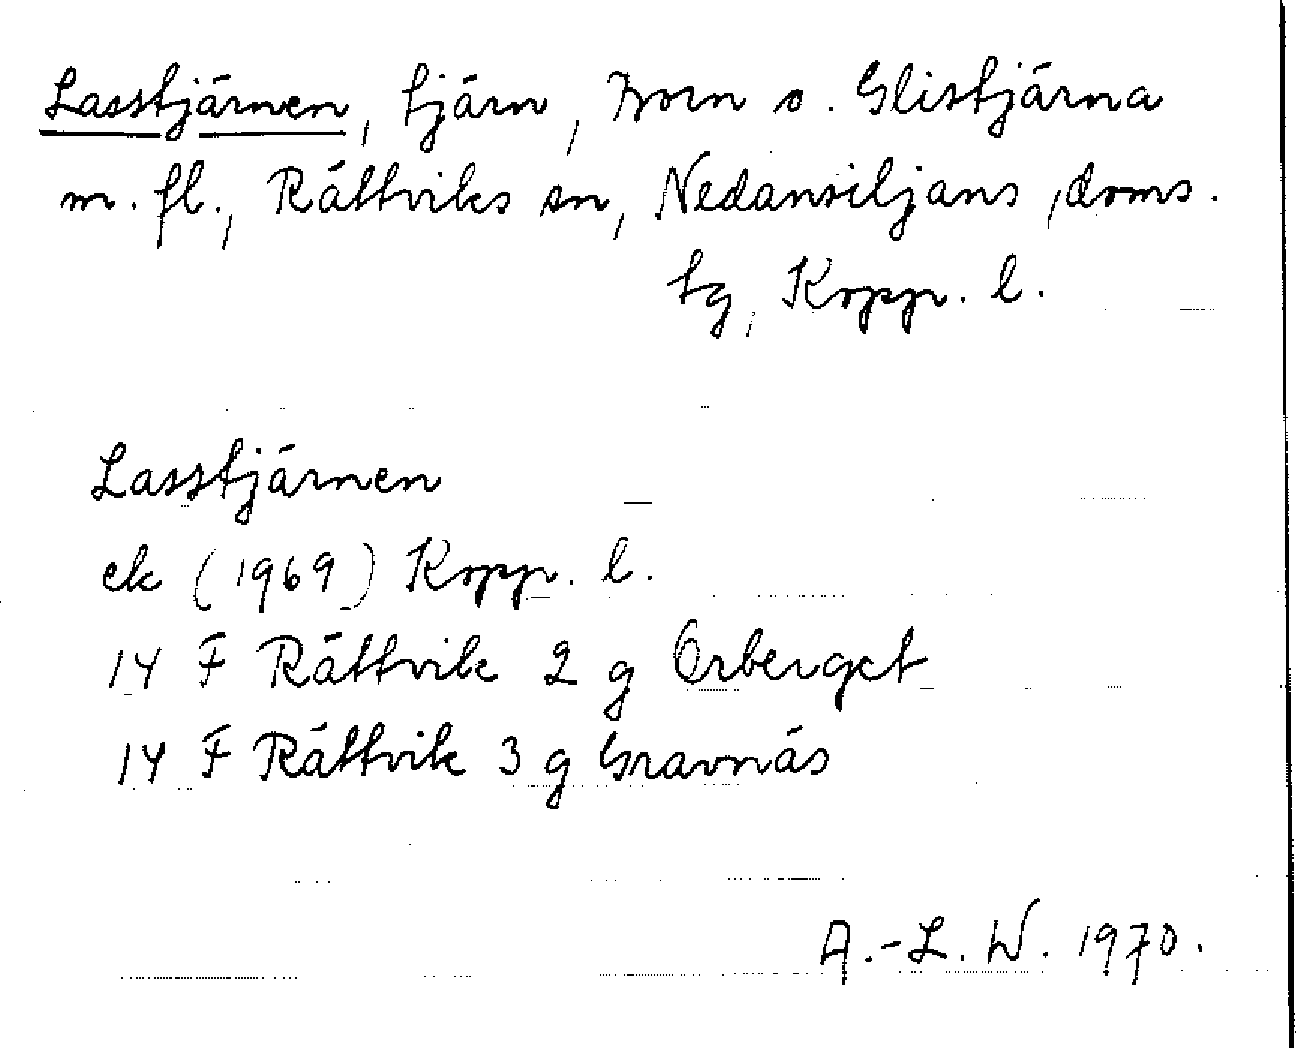 Lasstjärnen, tjärn, Born o. Glistjärna
m. fl., Rättviks sn, Nedansiljans doms.
tg, Kopp. l.
Lasstjärnen
ek (1969) Kopp. l.
14 F Rättvik 2 g Orberget
14 F Rättvik 3 g Gravnäs
A.-L. W. 1970.